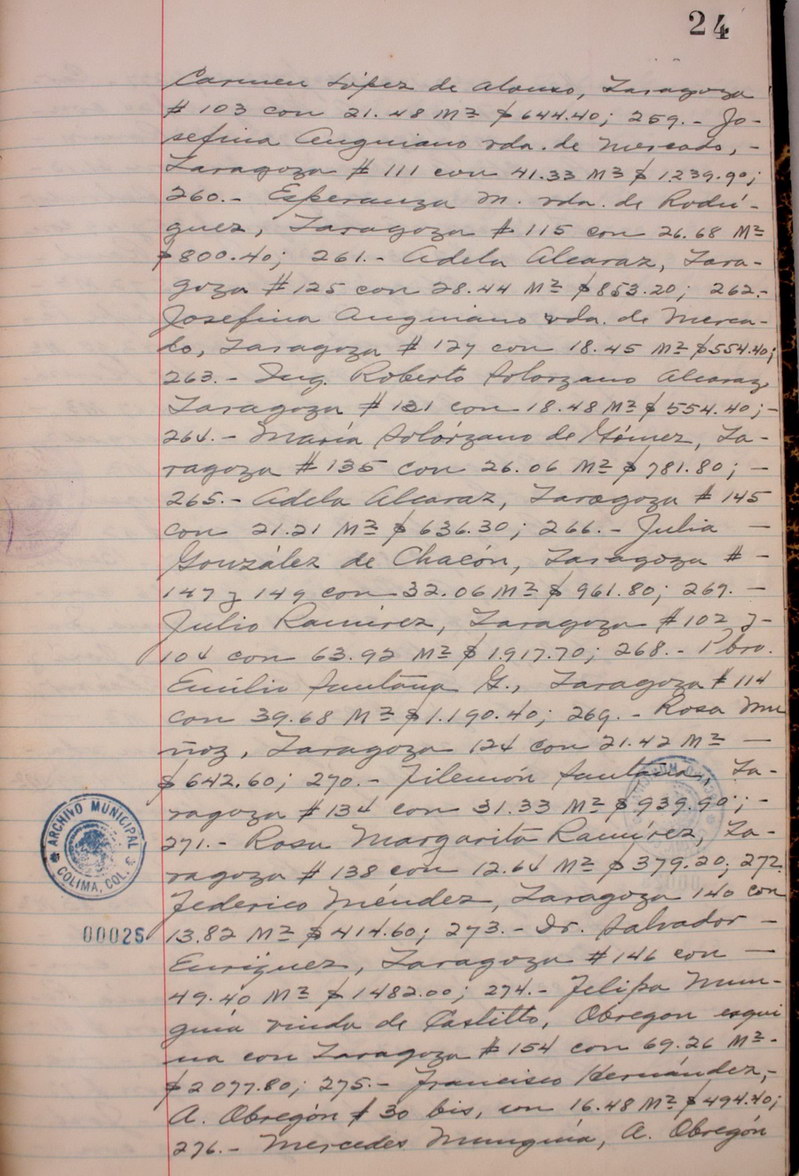 24
Carmen López de Alonso, Zaragoza
# 103 con 21.48 M2 $644.40; 259.- Jo-
sefina Anguiano vda. de Mercado, -
Zaragoza # 111 con 41.33 M2 $ 1.239.90;
260.- Esperanza M. vda. de Rodrí-
guez, Zaragoza # 115 con 26.68 M2
$800.40; 261.- Adela Alcaraz, Zara-
goza # 125 con 28.44 M2 $853.20; 262.-
Josefina Anguiano vda. de Merca-
do, Zaragoza # 127 con 18.45 M2 $554.40;
263.- Ing. Roberto Solorzano Alcaraz,
Zaragoza # 131 con 18.48 M2 $ 554.40; -
264.- María Solórzano de Gómez, Za-
ragoza # 135 con 26.06 M2 $ 781.80; -
265.- Adela Alcaraz, Zaragoza # 145
con 21.21 M2 $ 636.30; 266.- Julia -
González de Chacón, Zaragoza # -
147 y 149 con 32.06 M2 $ 961.80; 267. -
Julio Ramírez, Zaragoza # 102 y-
104 con 63.92 M2 $ 1.917.70; 268.- Pbro.
Emilio Santana G., Zaragoza # 114
con 39.68 M2 $1.190.40; 269.- Rosa Mu
ñoz, Zaragoza 124 con 21.42 M2 -
$642.60; 270.- Filemón Santana, Za-
ragoza # 134 con 31.33 M2 $.939.90; -
271.- Rosa Margarita Ramírez, Za-
ragoza # 138 con 12.64 M2 $ 379.20; 272.
Federico Méndez, Zaragoza 140 con
13.82 M2 $ 414.60; 273.- Dr. Salvador -
Enriquez, Zaragoza # 146 con -
49.40 M2 $ 1482.00; 274.- Felipa Mun-
guía viuda de Castillo, Obregon esqui
na con Zaragoza # 154 con 69.26 M2-
$ 2 077.80; 275.- Francisco Hernández,-
A. Obregón # 30 bis, con 16.48 M2 $494.40;
276.- Mercedes Munguía, A. Obregón
ARCHIVO MUNICIPAL
COLIMA, COL.
00025